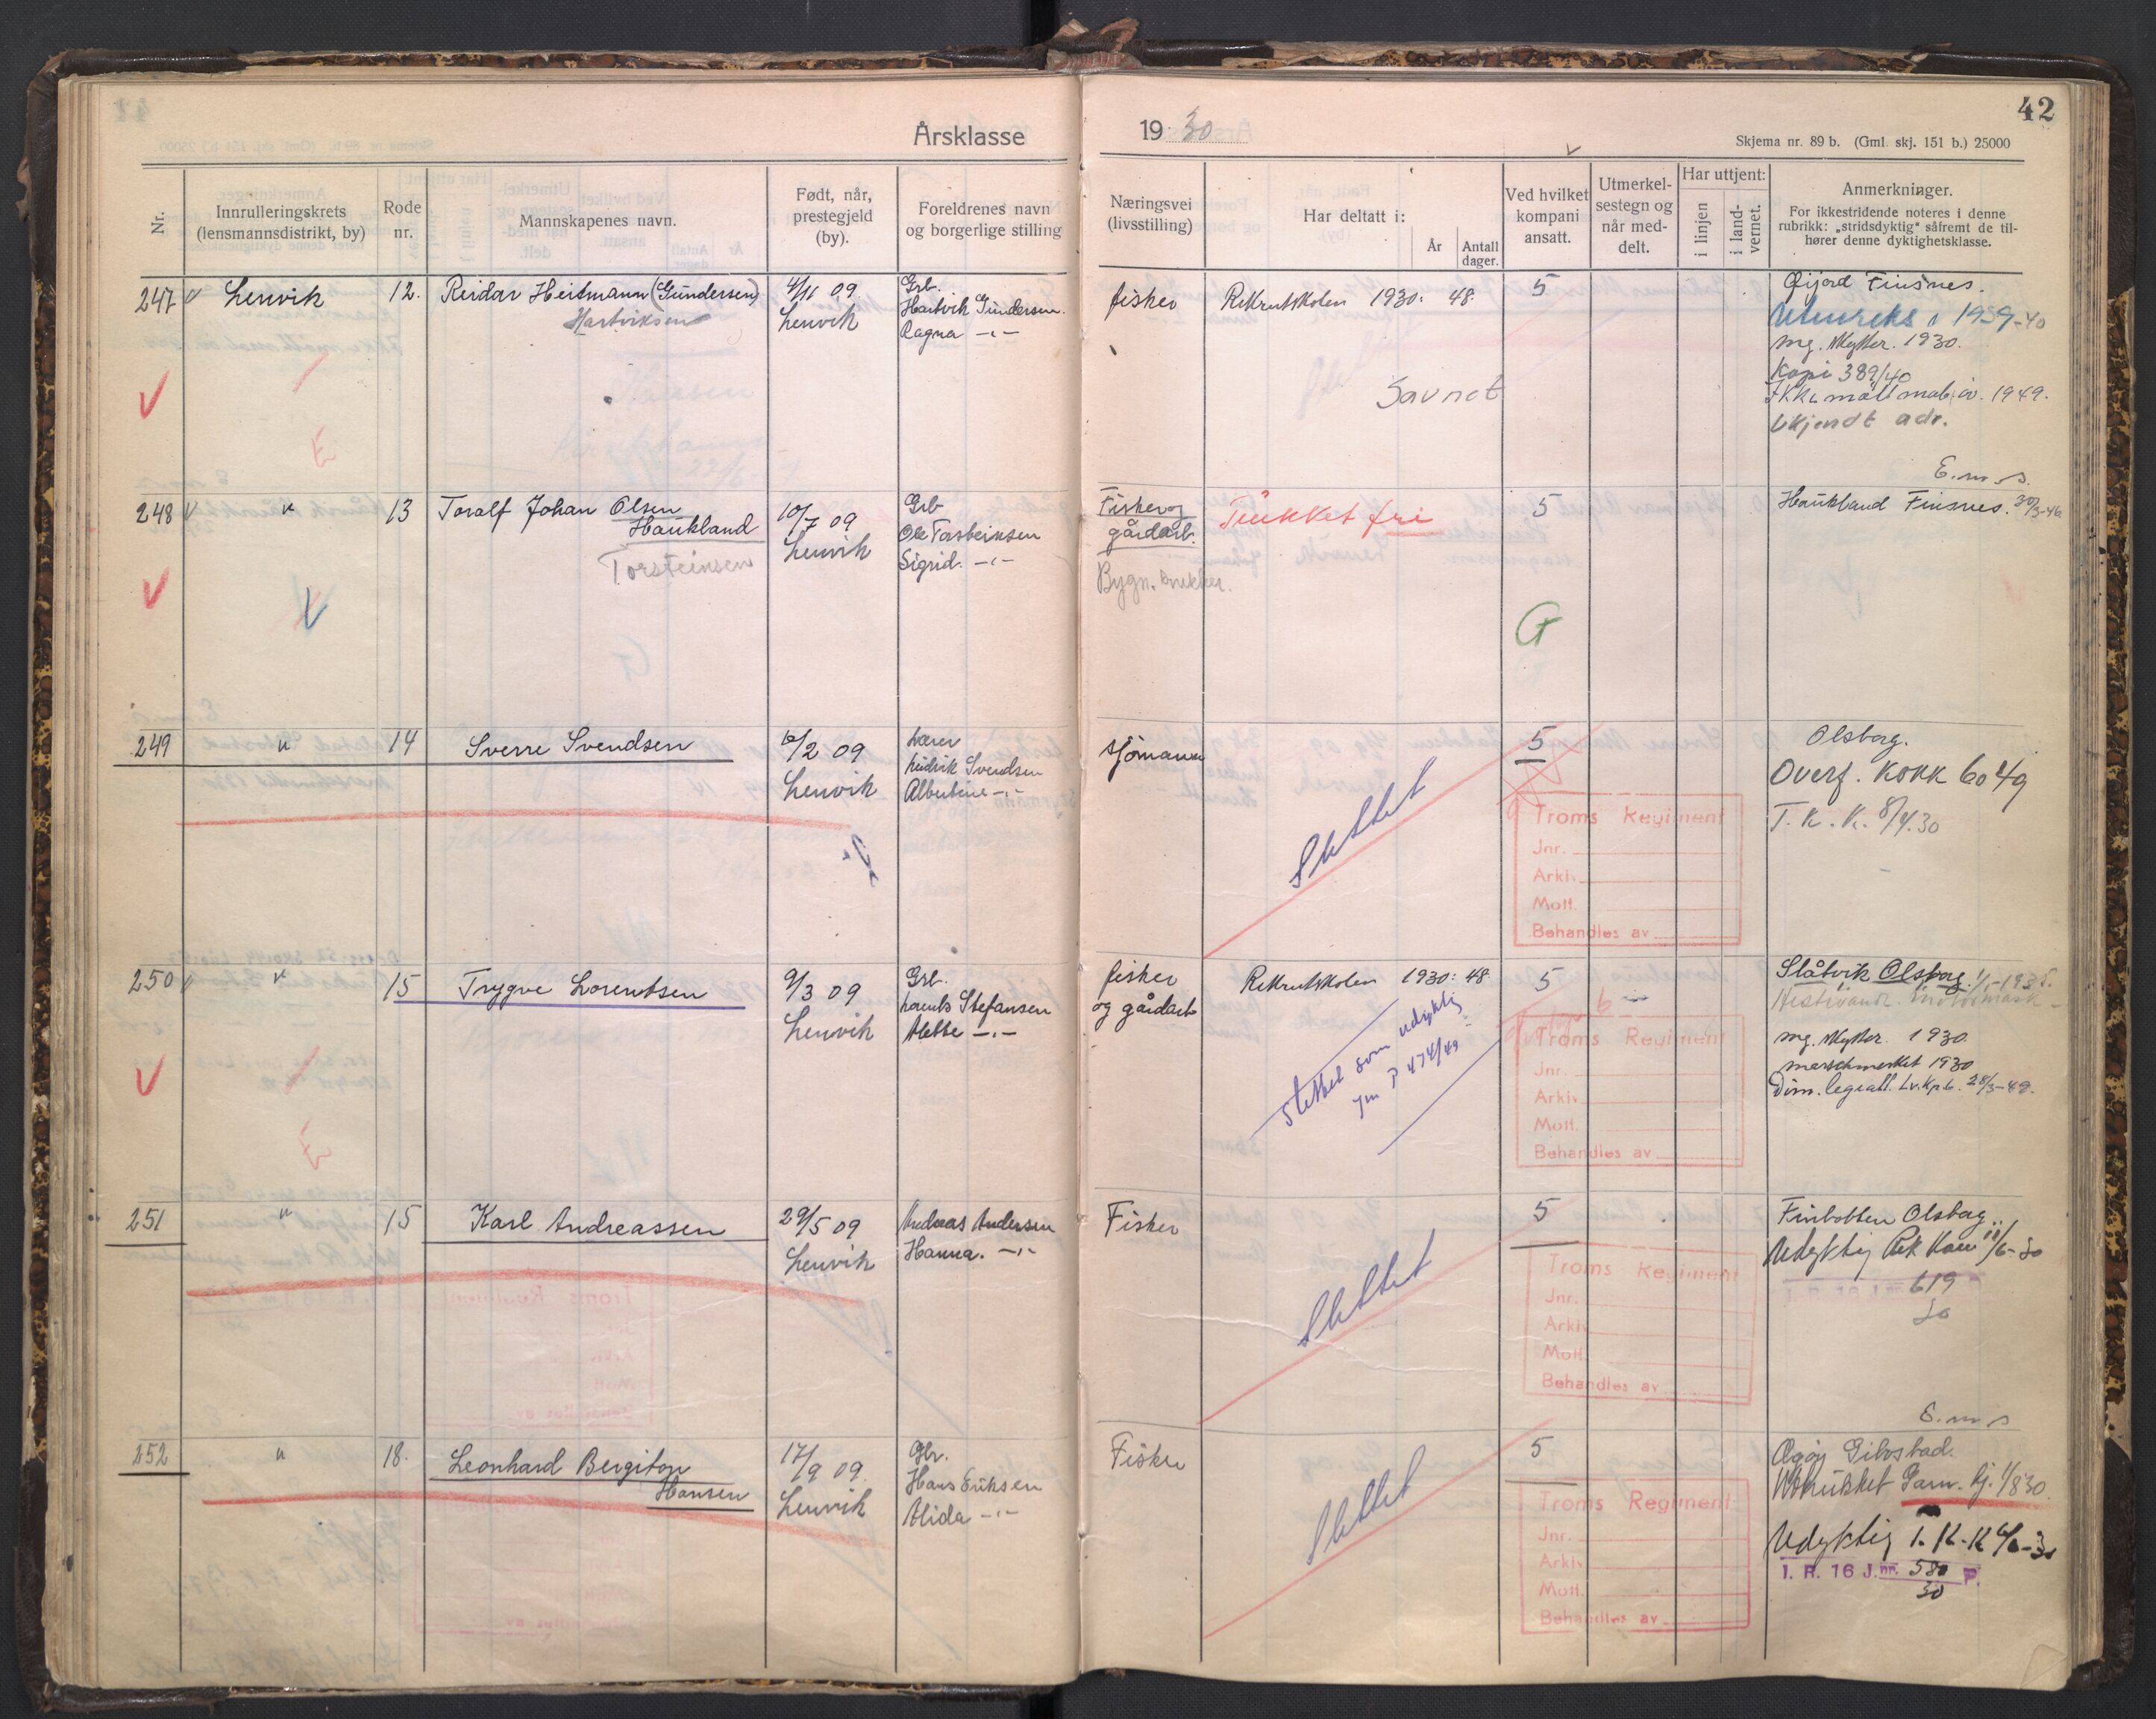 Årsklasse 1930
42
Skjema nr. 89 b. (Gml. skj. 151 b.) 25000
Nr.
Innrulleringskrets
(lensmannsdistrikt, by)
Rode
nr.
Mannskapenes navn.
Født, når,
prestegjeld
(by).
Foreldrenes navn
og borgerlige stilling
Næringsvei
(livsstilling)
Har deltatt i:
År
Antall
dager.
Ved hvilket
kompani
ansatt.
Utmerkel-
sestegn og
når med-
delt.
Har uttjent:
i linjen
i land-
vernet.
Anmerkninger.
For ikkestridende noteres i denne
rubrikk: „stridsdyktig" såfremt de til-
hører denne dyktighetsklasse.
247
Lenvik
12.
Reidar Heitmann (Gundersen)
Hartviksen
4/11 09
Lenvik
Grb.
Hartvik Gundersen.
Ragna -"-
fisker
Rekrutskolen 1930: 48.
Savnet
5
Gijord Finsnes.
Utenriks 1939-40
mg. skytter. 1930.
Kopi 389/40
Ikke møtt mob.øv. 1949.
Ukjendt adr.
E
248
"
13
Toralf Johan Olsen
Haukland
Torsteinsen
10/7 09
Lenvik
Grb
Ole Torsteinsen
Sigrid. -"-
Fisker og
gårdarb.
Bygn. snekker.
Trukket fri
5
G
E.m.s.
Haukland Finsnes. 30/3-46
249
"
14
Sverre Svendsen
10/2 09
Lenvik
Lærer
Hendrik Svendsen
Albertine -"-
sjömann
Slettet
5
Troms Regiment
Jnr.
Arkiv.
Mott.
Behandles av
Olsborg.
Overf. KOKK 60 49
T.K.K. 8/4.30
250
"
15
Trygve Lorentsen
9/3 09
Lenvik
Grb.
Lorents Stefansen
Alette -"-
fisker
og gårdarb
Rekrutskolen 1930: 48
slettet som udyktig
jnr P 474/49
5
6
Troms Regiment
Jnr.
Arkiv.
Mott.
Behandles av
Slåtvik Olsborg. 1/5-1935.
mg. skytter. 1930.
marschmerket 1930
Dim. legeatt. Lv.Kp.6. 28/3-49.
E
251
"
15
Karl Andreassen
29/5 09
Lenvik
Andreas Andersen
Hanna. -"-
Fisker
Slettet
5
Troms Regiment
Jnr.
Arkiv
Mott.
Behandles av
Finbotten Olsborg
Udyktig Rek Kom 11/6-30
619
30
252
"
18.
Leonhard Bergiton
Hansen
17/9 09.
Lenvik
Gbr.
Hans Eriksen
Alida -"-
Fisker
Slettet
5
Troms Regiment
Jnr.
Arkiv
Mott.
Behandles av
E.m.s
Øgøy Gibostad.
Utskrukket Garn. kj. 1/8 30.
Udyktig T.K.K 4/6-30
I. R. 16 J.nr. 580 P.
30